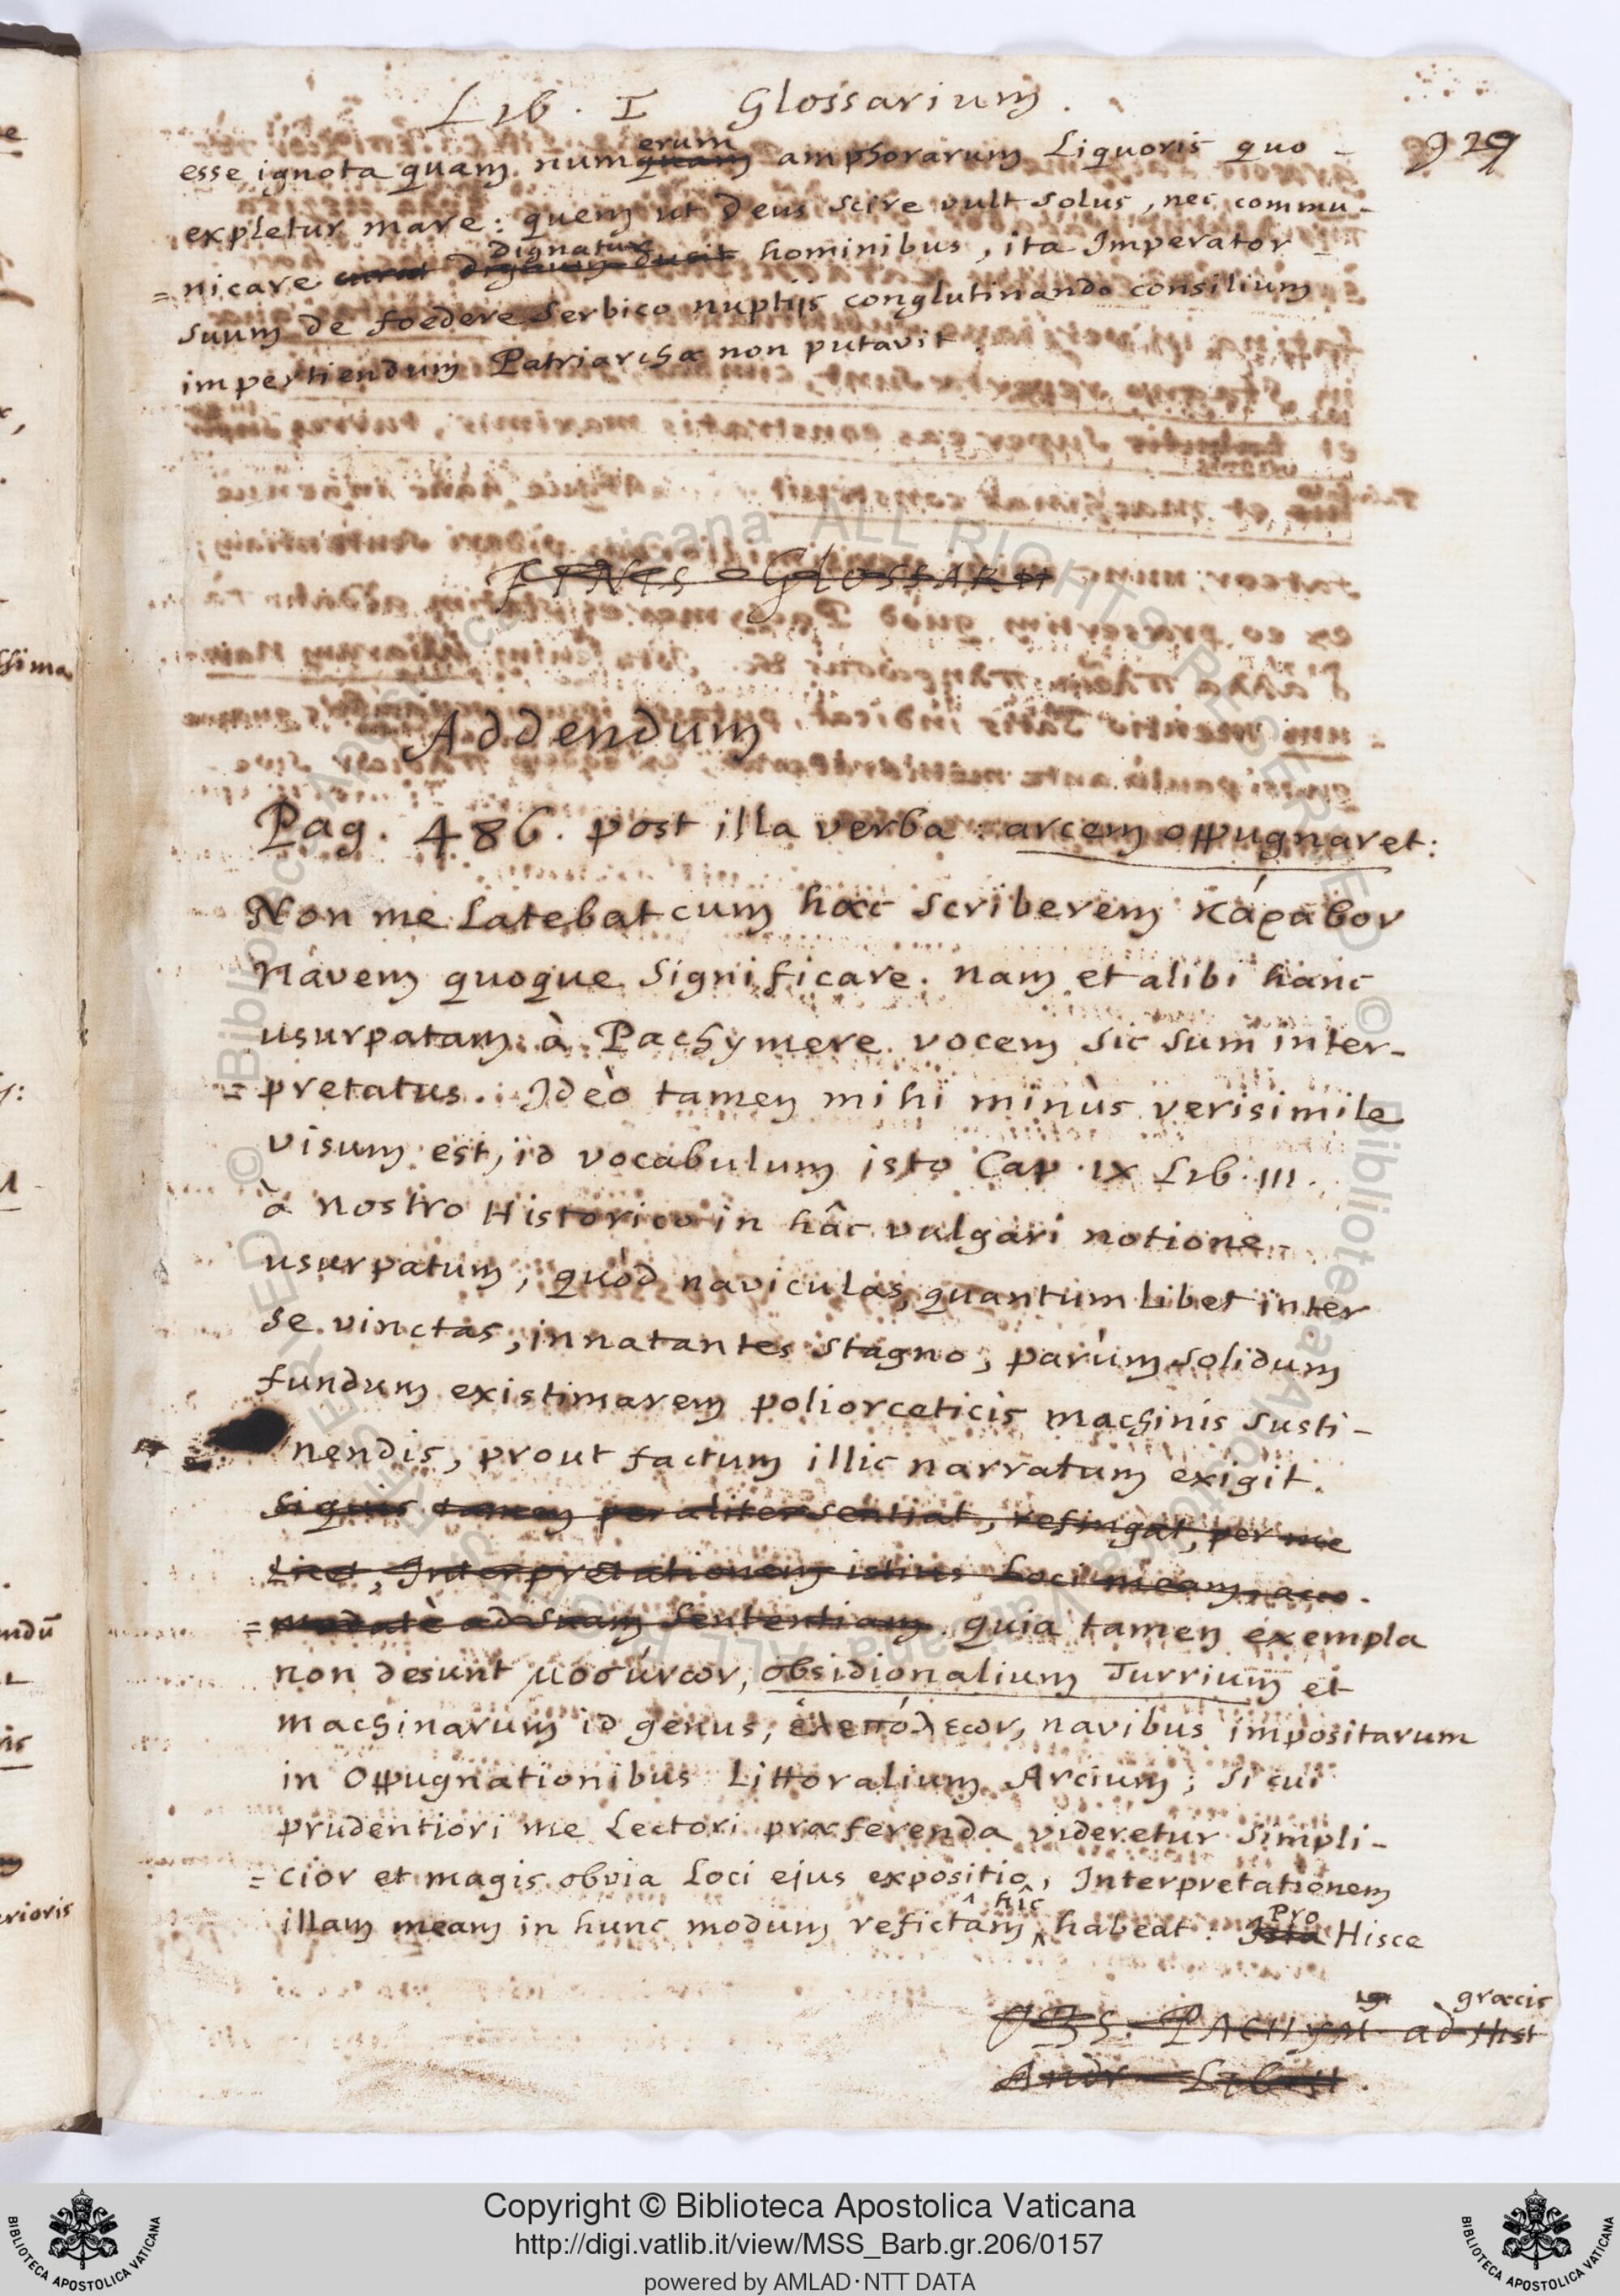 Lib. I Glossarium.
929
esse ignota quam numerum amphorarum Liquoris quo
expletur mare: quem ut Deus scire vult solus, nec commu-
=nicare dignatur hominibus, ita Imperator
suum de foedere Serbico nuptijs conglutinando consilium
impertiendum Patriarchæ non putavit.
FINIS GLOSSARII
Addendum
Pag. 486. post illa verba: arcem oppugnaret:
Non me Latebat cum hæc scriberem κάραβον
Navem quoque significare. nam et alibi hanc
usurpatam à Pachymere vocem sic sum inter-
=pretatus. Ideò tamen mihi minùs verisimile
visum est, id vocabulum isto Cap. IX Lib. III.
à nostro Historico in hâc vulgari notione
usurpatum, quòd naviculas, quantumlibet inter
se vinctas, innatantes stagno, parùm solidum
fundum existimarem poliorceticis machinis susti-
nendis, prout factum illic narratum exigit.
Siquis tamen per aliter sentiat, refingat, per me
Licet, Interpretationem istius Loci meam, acco-
=modatè ad suam sententiam. quia tamen exempla
non desunt μοσύνων, obsidionalium Turrium et
machinarum id genus, ἑλεπόλεων, navibus impositarum
in Oppugnationibus Littoralium Arcium; si cui
prudentiori me Lectori præferenda videretur simpli-
=cior et magis obvia Loci ejus expositio, Interpretationem
illam meam in hunc modum refictam hîc habeat. Pro Hisce
græcis
OBS. PACHYM. ad Hist
Andr. Lib.
© Biblioteca Apostolica Vaticana ALL RIGHTS RESERVED
Copyright © Biblioteca Apostolica Vaticana
http://digi.vatlib.it/view/MSS_Barb.gr.206/0157
powered by AMLAD·NTT DATA
BIBLIOTECA APOSTOLICA VATICANA
BIBLIOTECA APOSTOLICA VATICANA